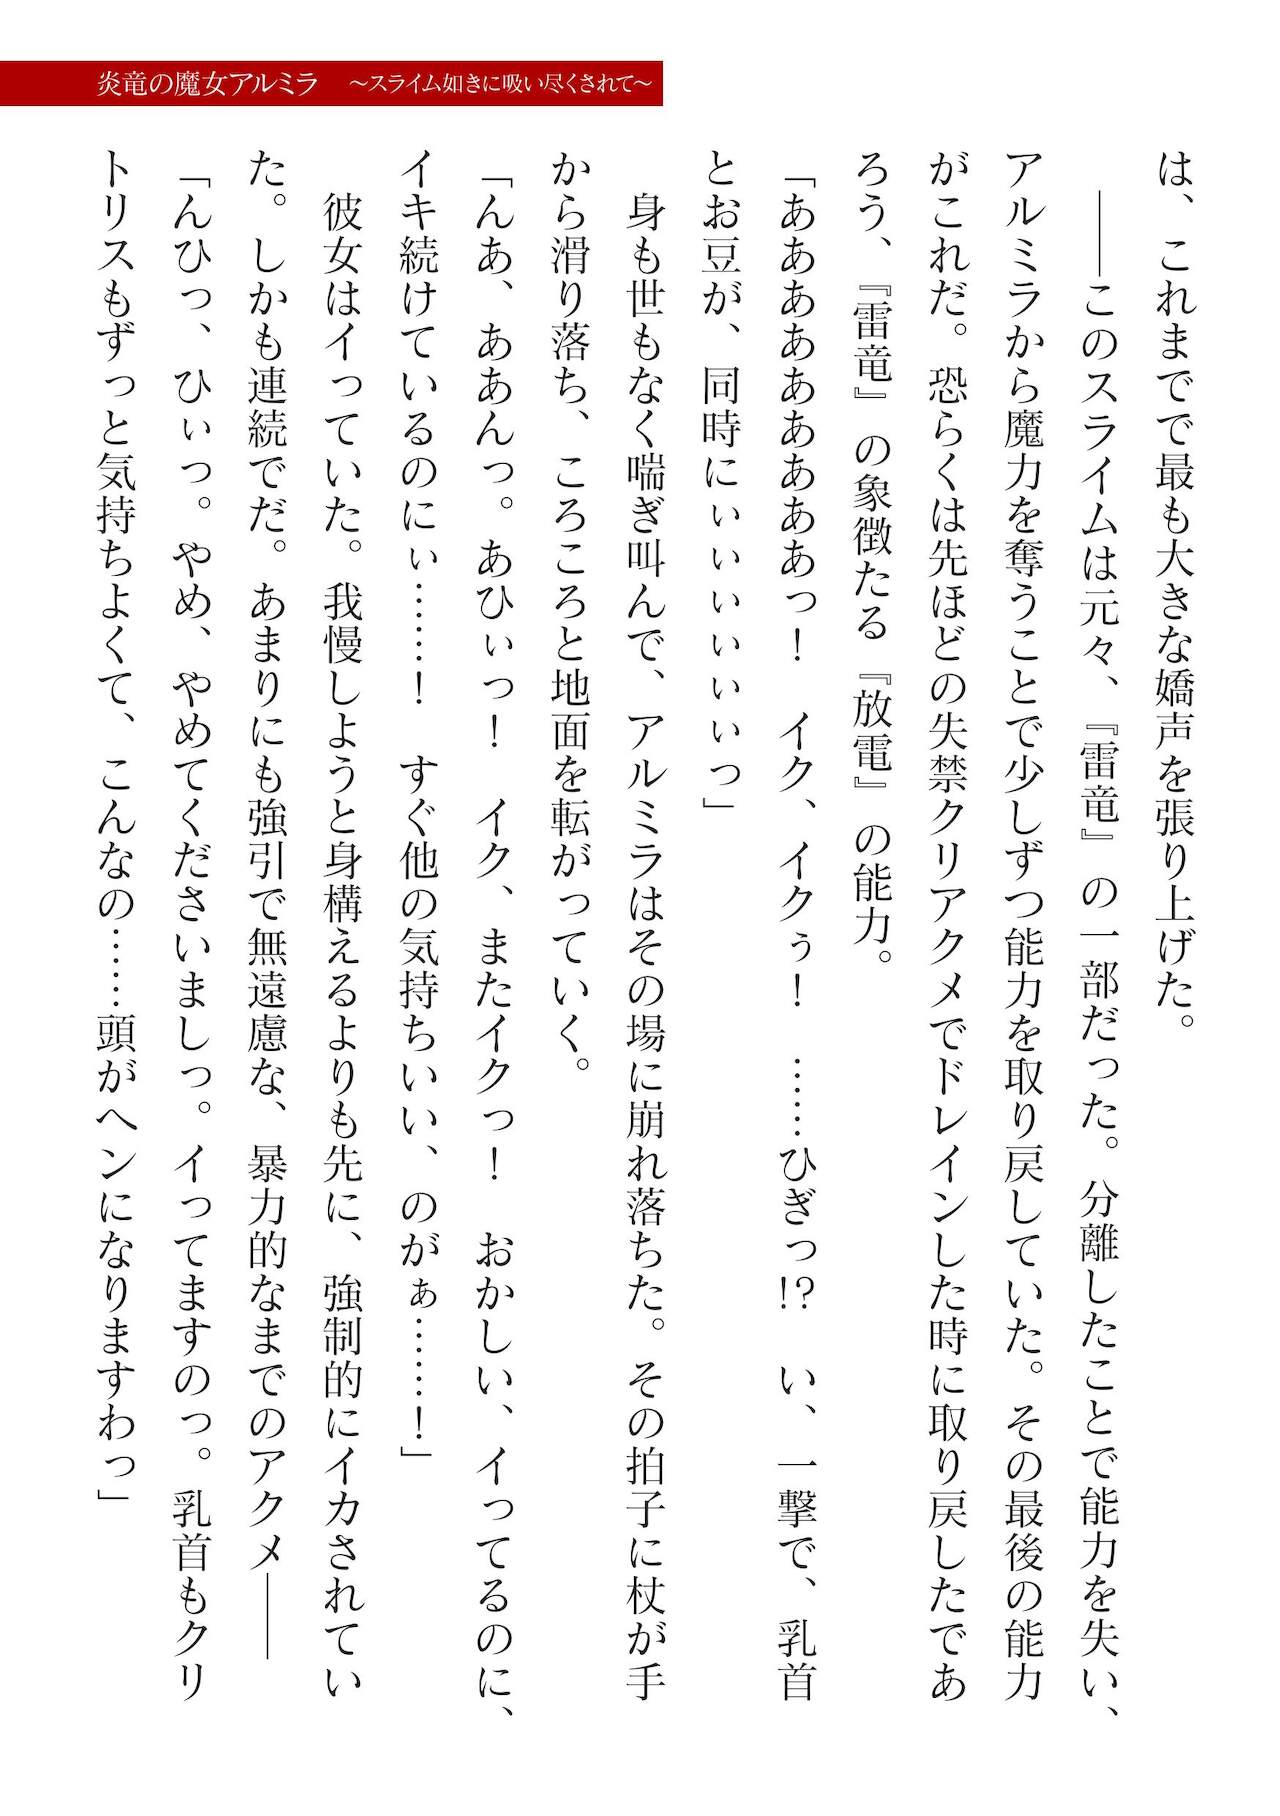 炎竜の魔女アルミラ　～スライム如きに吸い尽くされて～
は、これまでで最も大きな嬌声を張り上げた。
　――このスライムは元々、『雷竜』の一部だった。分離したことで能力を失い、
アルミラから魔力を奪うことで少しずつ能力を取り戻していた。その最後の能力
がこれだ。恐らくは先ほどの失禁クリアクメでドレインした時に取り戻したであ
ろう、『雷竜』の象徴たる『放電』の能力。
「ああああああああああっ！　イク、イクぅ！　……ひぎっ!?　い、一撃で、乳首
とお豆が、同時にぃぃぃぃぃぃっ」
　身も世もなく喘ぎ叫んで、アルミラはその場に崩れ落ちた。その拍子に杖が手
から滑り落ち、ころころと地面を転がっていく。
「んあ、ああんっ。あひぃっ！　イク、またイクっ！　おかしい、イってるのに、
イキ続けているのにぃ……！　すぐ他の気持ちいい、のがぁ……！」
　彼女はイっていた。我慢しようと身構えるよりも先に、強制的にイカされてい
た。しかも連続でだ。あまりにも強引で無遠慮な、暴力的なまでのアクメ――
「んひっ、ひぃっ。やめ、やめてくださいましっ。イってますのっ。乳首もクリ
トリスもずっと気持ちよくて、こんなの……頭がヘンになりますわっ」